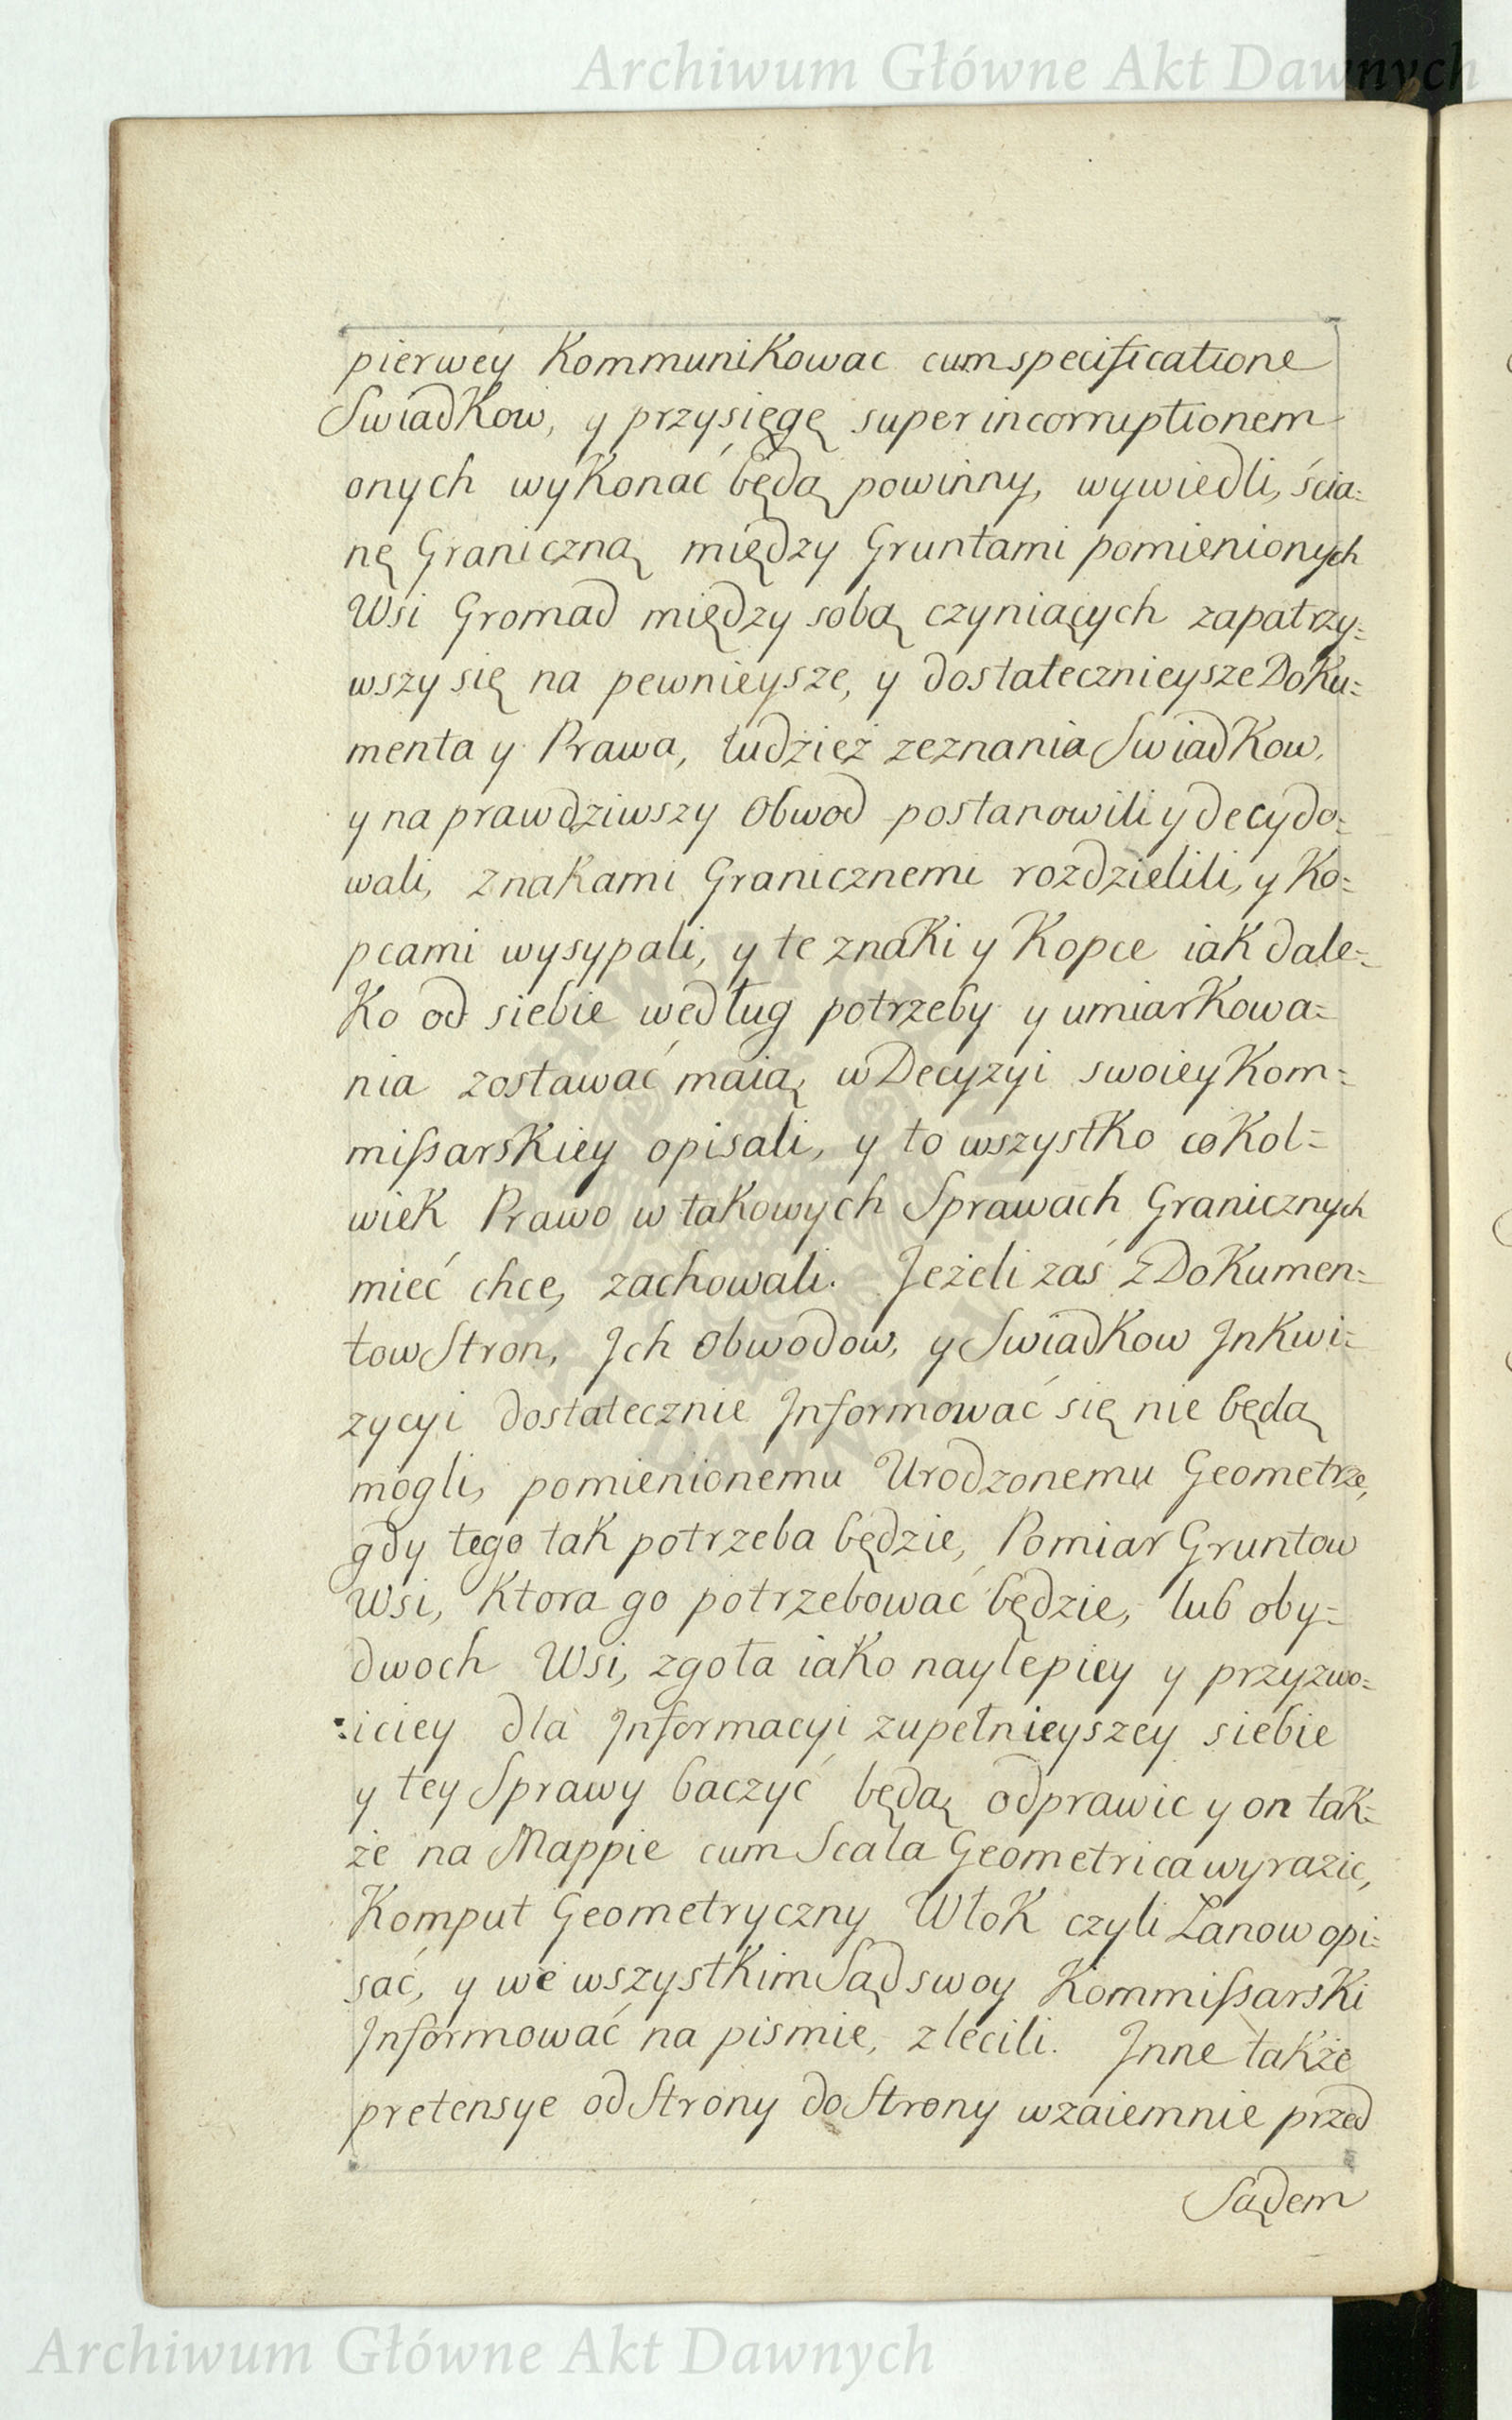 Archiwum Główne Akt Dawnych
pierwey Kommunikowac cum specificatione
Swiadkow, y przysięgę super incorruptionem
onych wykonać będą powinny, wywiedli, ścia=
nę Graniczną między Gruntami pomienionych
Wsi Gromad między sobą czyniących zapatrzy=
wszy się na pewnieysze, y dostatecznieysze Doku=
menta y Prawa, tudzież zeznania Swiadkow,
y na prawdziwszy Obwod postanowili y decydo=
wali, znakami Granicznemi rozdzielili, y Ko=
pcami wysypali, y te znaki y Kopce iak dale=
ko od siebie według potrzeby y umiarkowa=
nia zostawać maią w Decyzyi swoiey Kom=
missarskiey opisali, y to wszystko cokol=
wiek Prawo w takowych Sprawach Granicznych
mieć chce, zachowali. Jeżeli zaś z Dokumen=
tow Stron, Jch Obwodow, y Swiadkow Jnkwi=
zycyi dostatecznie Jnformować się nie będą
mogli, pomienionemu Urodzonemu Geometrze,
gdy tego tak potrzeba będzie, Pomiar Gruntow
Wsi, ktora go potrzebować będzie, lub oby=
dwoch Wsi, zgoła iako naylepiey y przyzwo=
:iciey dla Jnformacyi zupełnieyszey siebie
y tey Sprawy baczyć będą odprawic y on tak=
że na Mappie cum Scala Geometrica wyrazic,
Komput Geometryczny Włok czyli Łanow opi=
sać, y we wszystkim Sąd swoy Kommissarski
Jnformować na pismie, zlecili. Jnne także
pretensye od Strony do Strony wzaiemnie przed
Sądem
Archiwum Główne Akt Dawnych